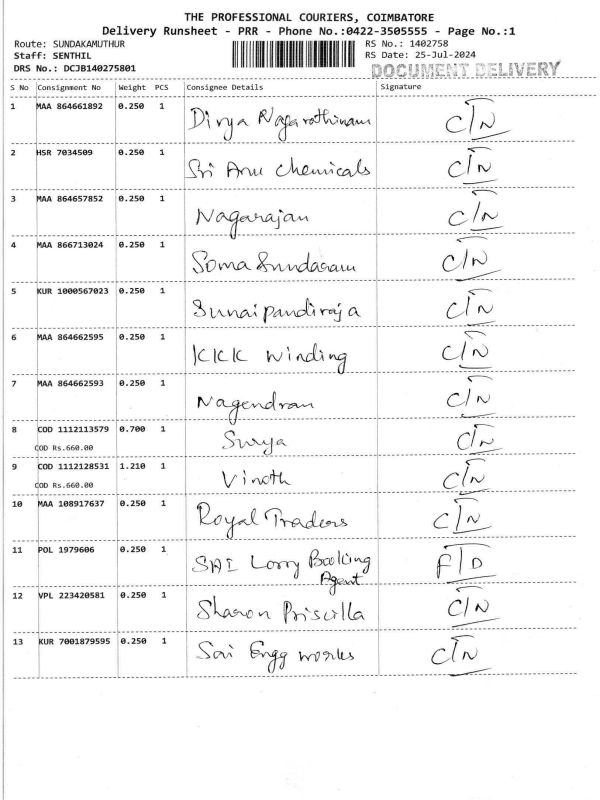 THE PROFESSIONAL COURIERS, COIMBATORE
Delivery Runsheet - PRR - Phone No.:0422-3505555 - Page No.:1
Route: SUNDAKAMUTHUR RS No.: 1402758
Staff: SENTHIL RS Date: 25-Jul-2024
DRS No.: DCJB140275801 DOCUMENT DELIVERY
S No Consignment No Weight PCS Consignee Details Signature
1 MAA 864661892 0.250 1 Divya Nagarathinam C/N
2 HSR 7034509 0.250 1 Sri Anu Chemicals C/N
3 MAA 864657852 0.250 1 Nagarajan C/N
4 MAA 866713024 0.250 1 Soma Sundaram C/N
5 KUR 1000567023 0.250 1 Sunaipandiraja C/N
6 MAA 864662595 0.250 1 KKK Winding C/N
7 MAA 864662593 0.250 1 Nagendran C/N
8 COD 1112113579 0.700 1 Surya C/N
COD Rs.660.00
9 COD 1112128531 1.210 1 Vinoth C/N
COD Rs.660.00
10 MAA 108917637 0.250 1 Royal Traders C/N
11 POL 1979606 0.250 1 SAI Lorry Booking F/D
Agent
12 VPL 223420581 0.250 1 Sharon Priscilla C/N
13 KUR 7001879595 0.250 1 Sai Engg works C/N